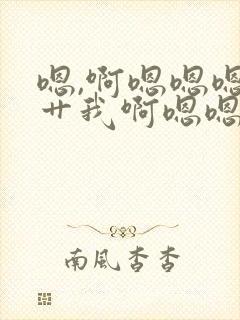 嗯,啊嗯嗯嗯
艹我啊嗯嗯
南風杏杳